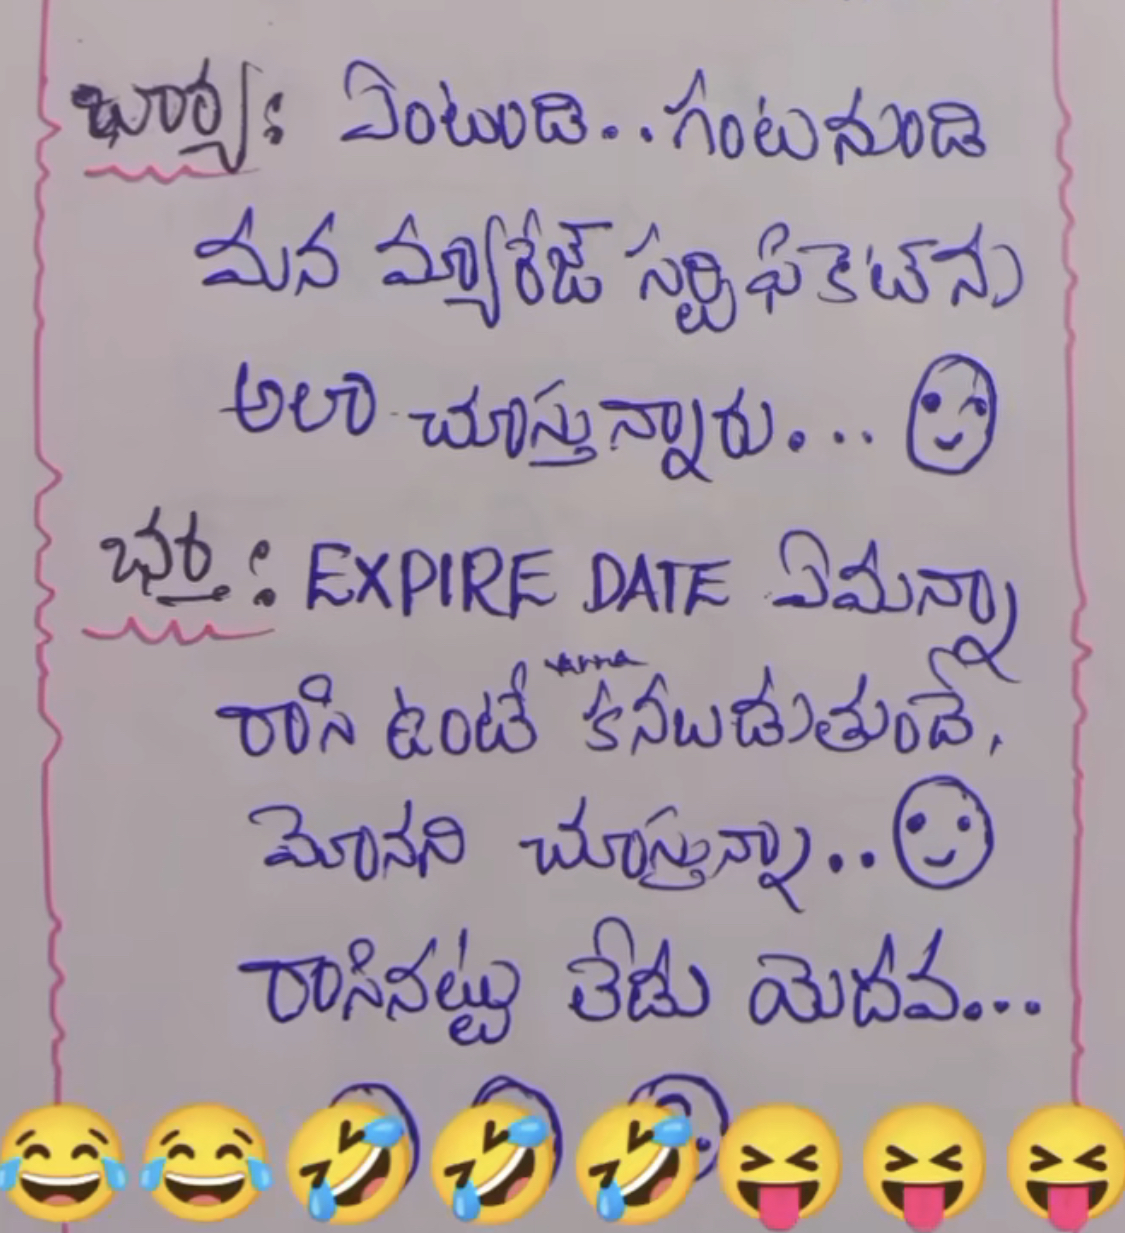 భార్య: ఏంటండి..గంటనుండి
మన మ్యారేజ్ సర్టిఫికెట్‌ను
అలా చూస్తున్నారు...
భర్త: EXPIRE DATE ఏమన్నా
రాసి ఉంటే కనబడుతుందే,
మోనని చూస్తున్నా..
రాసినట్టు లేదు యెదవ...